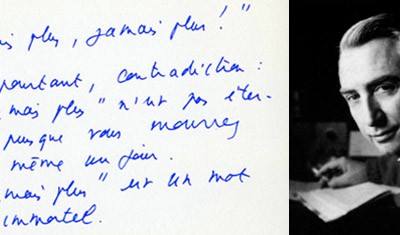 is plus, jamais plus ! "
pourtant, contradiction :
mais plus " n'est pas éter-
puisque vous mourrez
même un jour.
mais plus " est un mot
immortel.